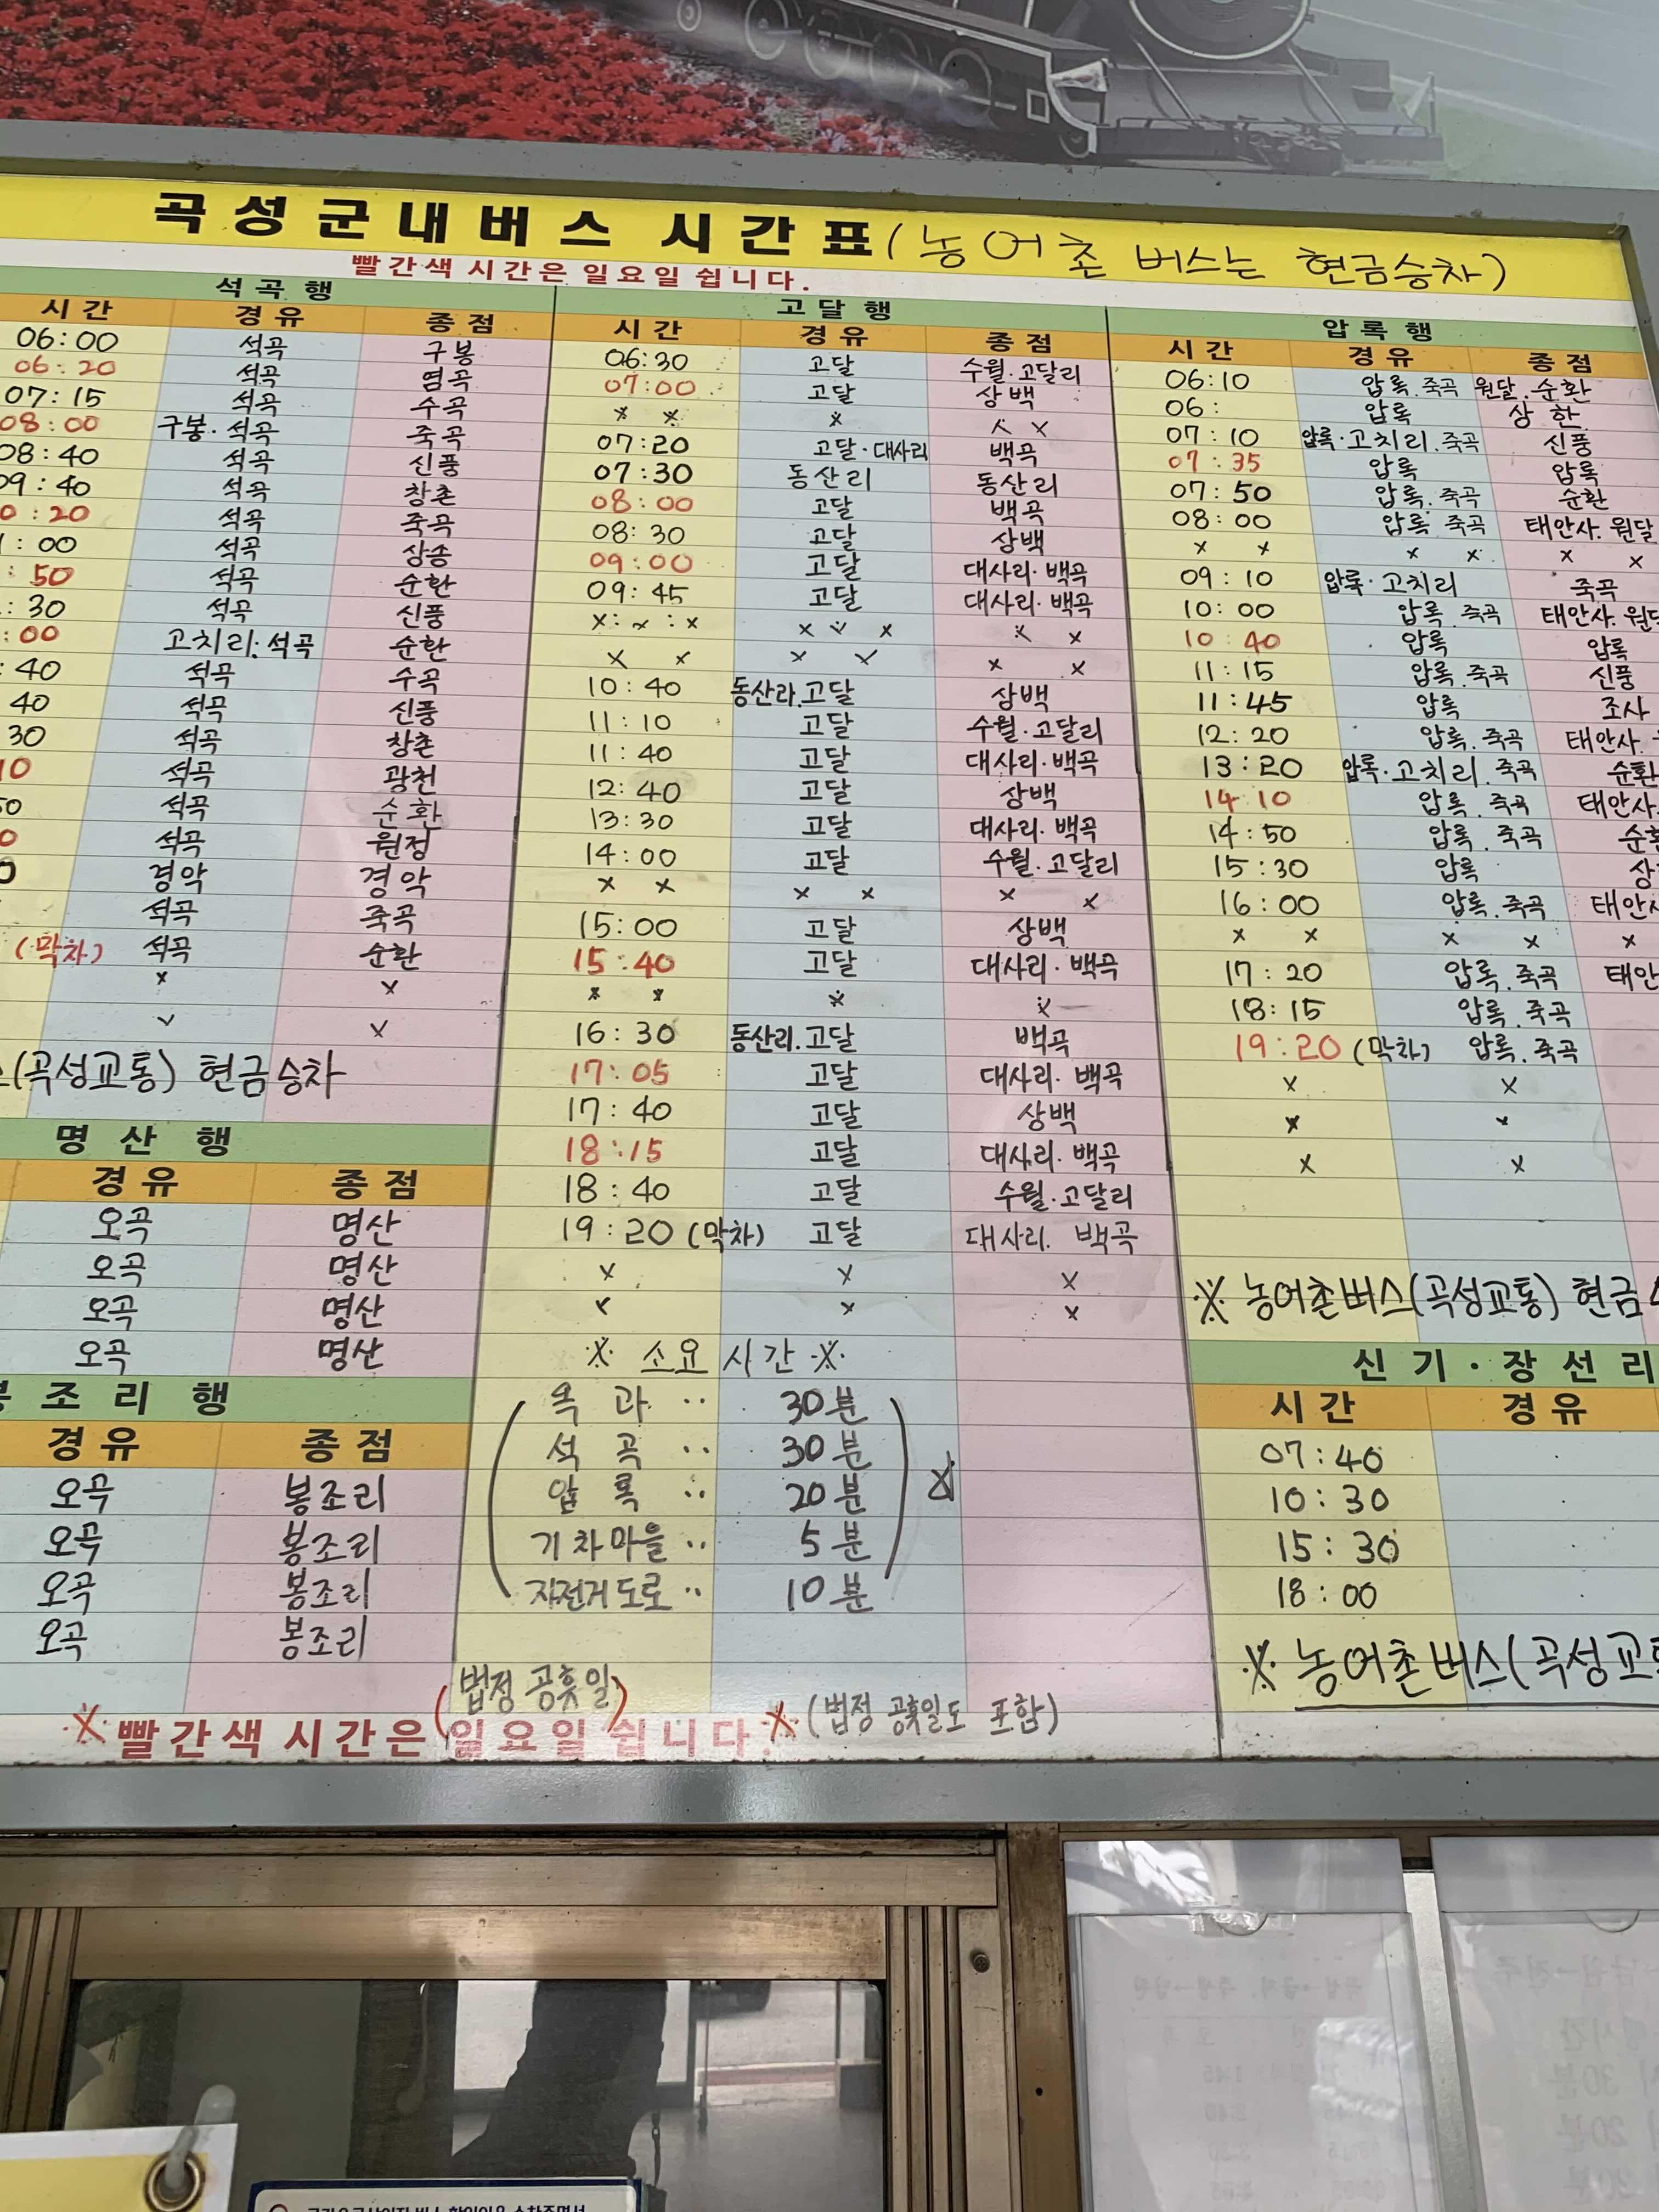 곡성군내버스 시간표 (농어촌 버스는 현금승차)
빨간색 시간은 일요일 쉽니다.
석곡행
시간 경유 종점
06:00 석곡 구봉
06:20 석곡 염곡
07:15 석곡 수곡
08:00 구봉·석곡 죽곡
08:40 석곡 신풍
09:40 석곡 창촌
0:20 석곡 죽곡
:00 석곡 상송
:50 석곡 순환
:30 석곡 신풍
:00 고치리·석곡 순환
:40 석곡 수곡
40 석곡 신풍
30 석곡 창촌
10 석곡 광천
50 석곡 순환
0 석곡 원정
0 경악 경악
석곡 죽곡
(막차) 석곡 순환
x x
x x
(곡성교통) 현금승차
명산행
경유 종점
오곡 명산
오곡 명산
오곡 명산
오곡 명산
봉조리행
경유 종점
오곡 봉조리
오곡 봉조리
오곡 봉조리
오곡 봉조리
고달행
시간 경유 종점
06:30 고달 수월·고달리
07:00 고달 상백
x x x x x
07:20 고달·대사리 백곡
07:30 동산리 동산리
08:00 고달 백곡
08:30 고달 상백
09:00 고달 대사리·백곡
09:45 고달 대사리·백곡
x x x x x x x
x x x x x x
10:40 동산리.고달 상백
11:10 고달 수월·고달리
11:40 고달 대사리·백곡
12:40 고달 상백
13:30 고달 대사리·백곡
14:00 고달 수월·고달리
x x x x x x
15:00 고달 상백
15:40 고달 대사리·백곡
x x x x
16:30 동산리.고달 백곡
17:05 고달 대사리·백곡
17:40 고달 상백
18:15 고달 대사리·백곡
18:40 고달 수월·고달리
19:20 (막차) 고달 대사리. 백곡
x x x
x x x
※ 소요시간 ※
옥과 ·· 30분
석곡 ·· 30분
압록 ·· 20분
기차마을 ·· 5분
자전거도로 ·· 10분
압록행
시간 경유 종점
06:10 압록.죽곡 원달.순환
06: 압록 상한
07:10 압록·고치리.죽곡 신풍
07:35 압록 압록
07:50 압록.죽곡 순환
08:00 압록 죽곡 태안사.원달
x x x x x x
09:10 압록·고치리 죽곡
10:00 압록.죽곡 태안사.원달
10:40 압록 압록
11:15 압록.죽곡 신풍
11:45 압록 조사
12:20 압록.죽곡 태안사.
13:20 압록·고치리.죽곡 순환
14:10 압록.죽곡 태안사.
14:50 압록.죽곡 순환
15:30 압록 상
16:00 압록.죽곡 태안사
x x x x x
17:20 압록.죽곡 태안
18:15 압록.죽곡
19:20 (막차) 압록.죽곡
x x
x x
x x
※ 농어촌버스(곡성교통) 현금
신기·장선리
시간 경유
07:40
10:30
15:30
18:00
※ 농어촌버스(곡성교통
(법정 공휴일)
※ 빨간색 시간은 일요일 쉽니다.※ (법정 공휴일도 포함)